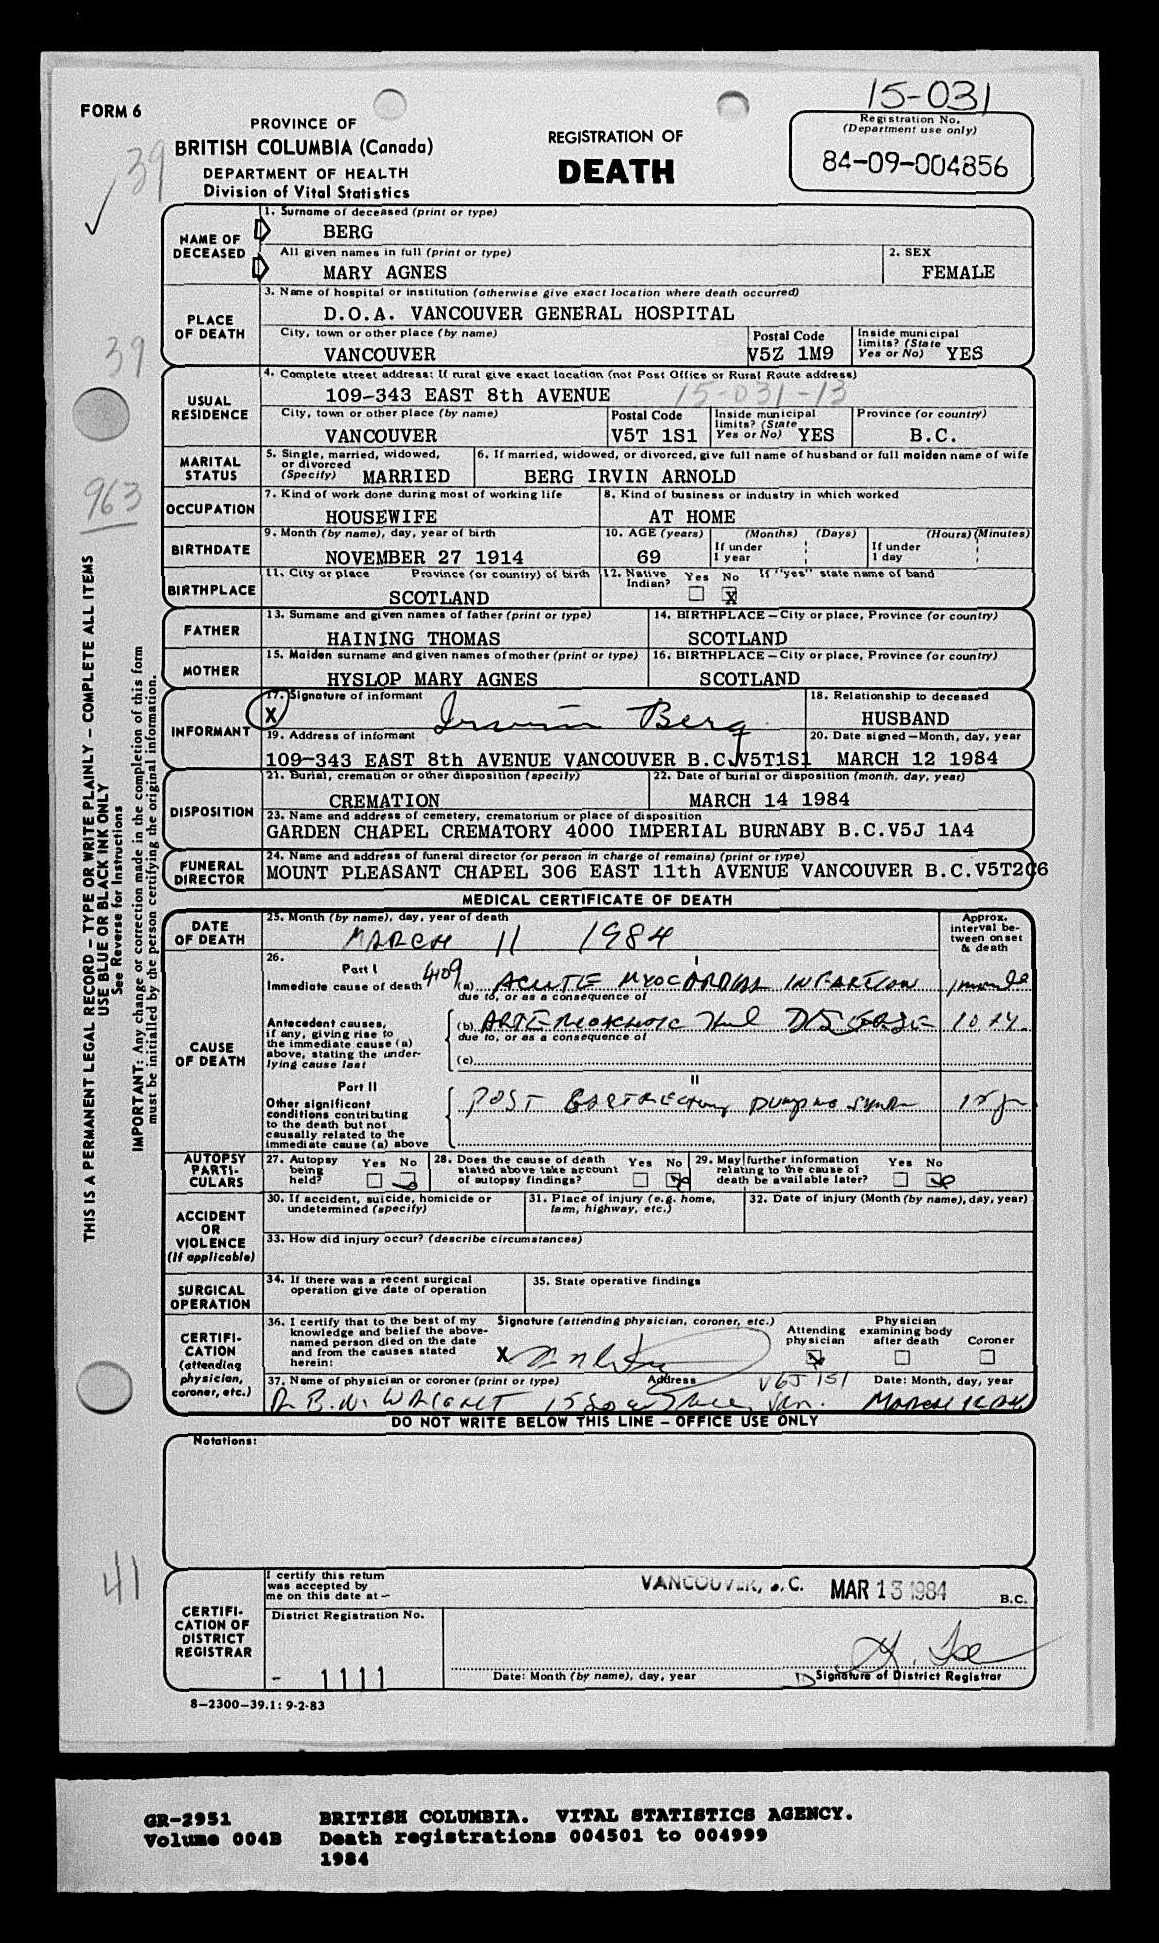 15-031
FORM 6
PROVINCE OF
BRITISH COLUMBIA (Canada)
DEPARTMENT OF HEALTH
Division of Vital Statistics
REGISTRATION OF
DEATH
Registration No.
(Department use only)
84-09-004856
39
39
963
41
THIS IS A PERMANENT LEGAL RECORD – TYPE OR WRITE PLAINLY – COMPLETE ALL ITEMS
USE BLUE OR BLACK INK ONLY
See Reverse for Instructions
IMPORTANT: Any change or correction made in the completion of this form
must be initialled by the person certifying the original information.
NAME OF
DECEASED
1. Surname of deceased (print or type)
BERG
All given names in full (print or type)
MARY AGNES
2. SEX
FEMALE
PLACE
OF DEATH
3. Name of hospital or institution (otherwise give exact location where death occurred)
D.O.A. VANCOUVER GENERAL HOSPITAL
City, town or other place (by name)
VANCOUVER
Postal Code
V5Z 1M9
Inside municipal
limits? (State
Yes or No) YES
USUAL
RESIDENCE
4. Complete street address: If rural give exact location (not Post Office or Rural Route address)
109-343 EAST 8th AVENUE 15-031-13
City, town or other place (by name)
VANCOUVER
Postal Code
V5T 1S1
Inside municipal
limits? (State
Yes or No) YES
Province (or country)
B.C.
MARITAL
STATUS
5. Single, married, widowed,
or divorced
(Specify) MARRIED
6. If married, widowed, or divorced, give full name of husband or full maiden name of wife
BERG IRVIN ARNOLD
OCCUPATION
7. Kind of work done during most of working life
HOUSEWIFE
8. Kind of business or industry in which worked
AT HOME
BIRTHDATE
9. Month (by name), day, year of birth
NOVEMBER 27 1914
10. AGE (years)
69
(Months) (Days)
If under
1 year
(Hours) (Minutes)
If under
1 day
BIRTHPLACE
11. City or place Province (or country) of birth
SCOTLAND
12. Native
Indian?
Yes No
X
If "yes" state name of band
FATHER
13. Surname and given names of father (print or type)
HAINING THOMAS
14. BIRTHPLACE – City or place, Province (or country)
SCOTLAND
MOTHER
15. Maiden surname and given names of mother (print or type)
HYSLOP MARY AGNES
16. BIRTHPLACE – City or place, Province (or country)
SCOTLAND
INFORMANT
17. Signature of informant
X Irwin Berg
18. Relationship to deceased
HUSBAND
19. Address of informant
109-343 EAST 8th AVENUE VANCOUVER B.C.V5T1S1
20. Date signed – Month, day, year
MARCH 12 1984
DISPOSITION
21. Burial, cremation or other disposition (specify)
CREMATION
22. Date of burial or disposition (month, day, year)
MARCH 14 1984
23. Name and address of cemetery, crematorium or place of disposition
GARDEN CHAPEL CREMATORY 4000 IMPERIAL BURNABY B.C.V5J 1A4
FUNERAL
DIRECTOR
24. Name and address of funeral director (or person in charge of remains) (print or type)
MOUNT PLEASANT CHAPEL 306 EAST 11th AVENUE VANCOUVER B.C.V5T2C6
MEDICAL CERTIFICATE OF DEATH
DATE
OF DEATH
25. Month (by name), day, year of death
MARCH 11 1984
Approx.
interval be-
tween onset
& death
CAUSE
OF DEATH
26.
Part I
I
Immediate cause of death 409 (a) ACUTE MYOCARDIAL INFARCTION
due to, or as a consequence of
Antecedent causes,
if any, giving rise to
the immediate cause (a)
above, stating the under-
lying cause last
(b) DISEASE
due to, or as a consequence of
(c)
Part II
II
Other significant
conditions contributing
to the death but not
causally related to the
immediate cause (a) above
POST GASTRECTOMY DUMPING
AUTOPSY
PARTI-
CULARS
27. Autopsy
being
held?
Yes No
28. Does the cause of death
stated above take account
of autopsy findings?
Yes No
29. May further information
relating to the cause of
death be available later?
Yes No
ACCIDENT
OR
VIOLENCE
(If applicable)
30. If accident, suicide, homicide or
undetermined (specify)
31. Place of injury (e.g. home,
farm, highway, etc.)
32. Date of injury (Month (by name), day, year)
33. How did injury occur? (describe circumstances)
SURGICAL
OPERATION
34. If there was a recent surgical
operation give date of operation
35. State operative findings
CERTIFI-
CATION
(attending
physician,
coroner, etc.)
36. I certify that to the best of my
knowledge and belief the above-
named person died on the date
and from the causes stated
herein:
Signature (attending physician, coroner, etc.)
X
Attending
physician
Physician
examining body
after death
Coroner
37. Name of physician or coroner (print or type) Address
V6J 1S1
Date: Month, day, year
DR B.W. WRIGHT Van. MARCH
DO NOT WRITE BELOW THIS LINE – OFFICE USE ONLY
Notations:
CERTIFI-
CATION OF
DISTRICT
REGISTRAR
I certify this return
was accepted by
me on this date at –
VANCOUVER, B.C. MAR 13 1984
B.C.
District Registration No.
- 1111
Date: Month (by name), day, year
Signature of District Registrar
8–2300–39.1: 9-2-83
GR-2951
Volume 004B
BRITISH COLUMBIA. VITAL STATISTICS AGENCY.
Death registrations 004501 to 004999
1984